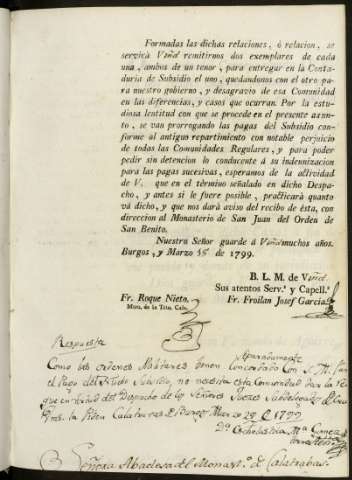 Formadas las dichas relaciones, ò relacion, se
servirà Vmd remitirnos dos exemplares de cada
una, ambos de un tenor, para entregar en la Conta-
duría de Subsidio el uno, quedandonos con el otro pa-
ra nuestro gobierno, y desagravio de esa Comunidad
en las diferencias, y casos que ocurran. Por la estu-
diosa lentitud con que se procede en el presente asun-
to, se van prorrogando las pagas del Subsidio con-
forme al antiguo repartimiento con notable perjuicio
de todas las Comunidades Regulares, y para poder
pedir sin detencion lo conducente á su indemnizacion
para las pagas sucesivas, esperamos de la actividad
de V. que en el término señalado en dicho Despa-
cho, y antes si le fuere posible, practicará quanto
vá dicho, y que nos dará aviso del recibo de ésta, con
direccion al Monasterio de San Juan del Orden de
San Benito.
Nuestro Señor guarde á Vmd muchos años.
Burgos, y Marzo 15 de 1799.
B. L. M. de Vmd
Sus atentos Serv.s y Capell.s
Fr. Roque Nieto.
Fr. Froilan Josef Garcia
Mtro. de la Trin. Calz.
Respuesta
Como las ordenes Militares tienen Concordado Con S. M.
el Pago del Subsidio, no necesita esta Comunidad dar la
que en virtud del Despacho de los Señores Jueces Subdelegados de
Calatravas de Burgos Marzo 29 de 1799
D.a Escholastica M.a Gomez
Señora Abadesa del Monast.o de Calatrabas